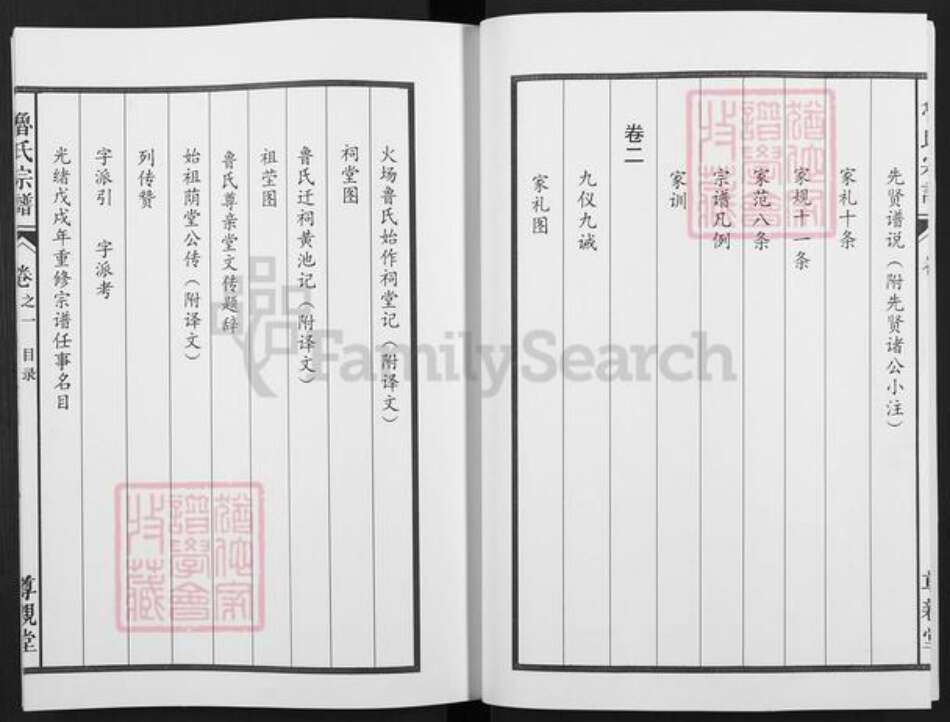 先贤谱说（附先贤诸公小注）
家礼十条
家规十一条
家范八条
宗谱凡例
家训
卷二
九仪九诫
家礼图
火场鲁氏始作祠堂记（附译文）
祠堂图
鲁氏迁祠黄池记（附译文）
祖茔图
鲁氏尊亲堂文传题辞
始祖荫堂公传（附译文）
列传赞
字派引 字派考
光绪戊戌年重修宗谱任事名目
魯氏宗譜
卷之一 目录
尊親堂
譜學會
收藏
FamilySearch